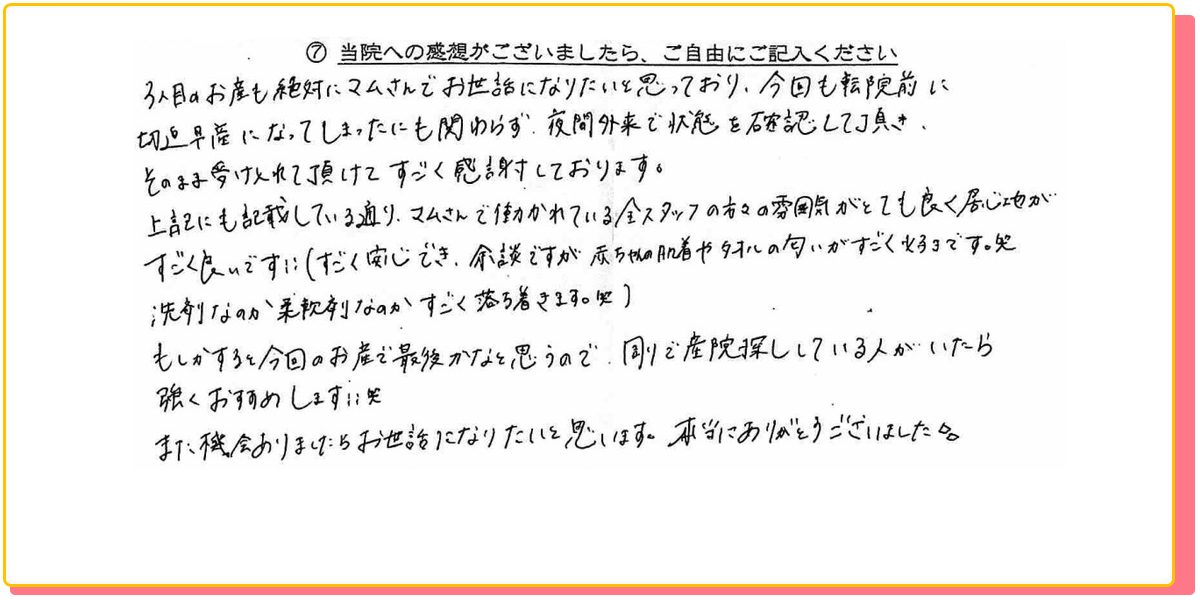 ⑦ 当院への感想がございましたら、ご自由にご記入ください
3人目のお産も絶対にマムさんでお世話になりたいと思っており、今回も転院前に
切迫早産になってしまったにも関わらず、夜間外来で状態を確認して頂き、
そのまま受け入れて頂けてすごく感謝しております。
上記にも記載している通り、マムさんで働かれている全スタッフの方々の雰囲気がとても良く居心地が
すごく良いです!!(すごく安心でき、余談ですが赤ちゃんの肌着やタオルの匂いがすごく好きです。笑
洗剤なのか柔軟剤なのかすごく落ち着きます。笑)
もしかすると今回のお産で最後かなと思うので、周りで産院探ししている人がいたら
強くおすすめします!!笑
また機会ありましたらお世話になりたいと思います。本当にありがとうございました。